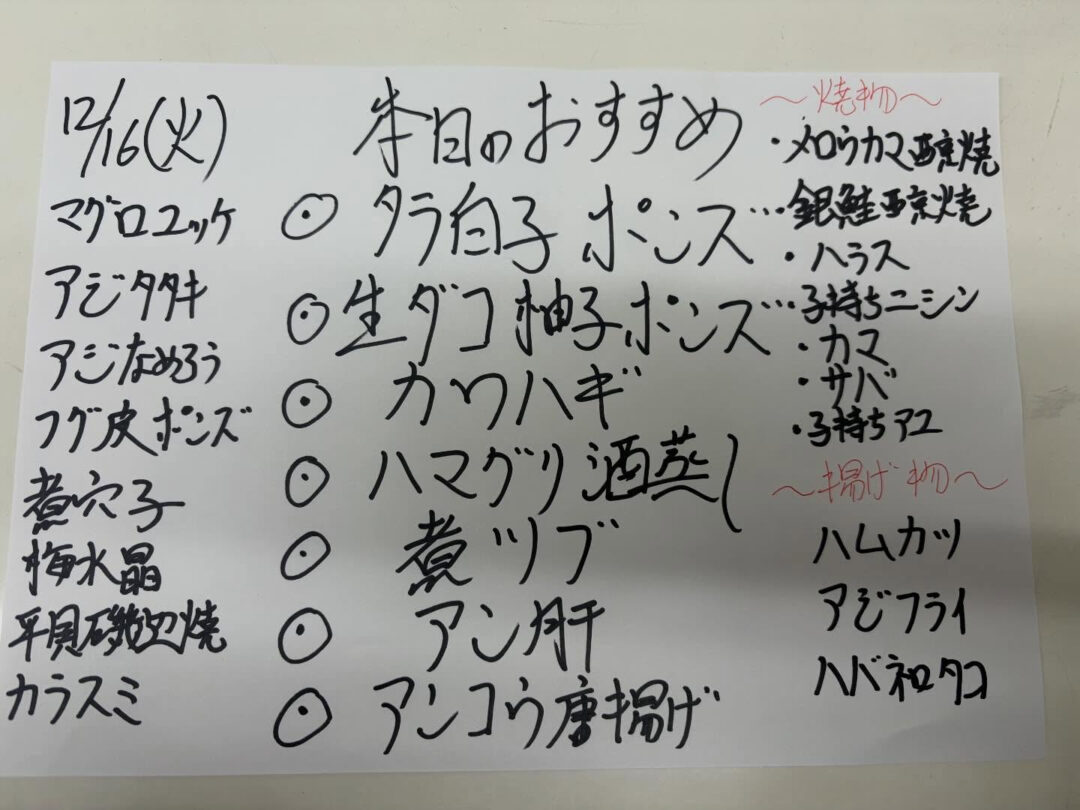 12/16(火)
マグロユッケ
アジタタキ
アジなめろう
フグ皮ポンズ
煮穴子
梅水晶
平貝磯辺焼
カラスミ
本日のおすすめ
◉ タラ白子ポンズ
◉ 生ダコ柚子ポンズ
◉ カワハギ
◉ ハマグリ酒蒸し
◉ 煮ツブ
◉ アン肝
◉ アンコウ唐揚げ
～焼物～
・メロウカマ西京焼
・銀鮭西京焼
・ハラス
・子持ちニシン
・カマ
・サバ
・子持ちアユ
～揚げ物～
ハムカツ
アジフライ
ハバネロタコ